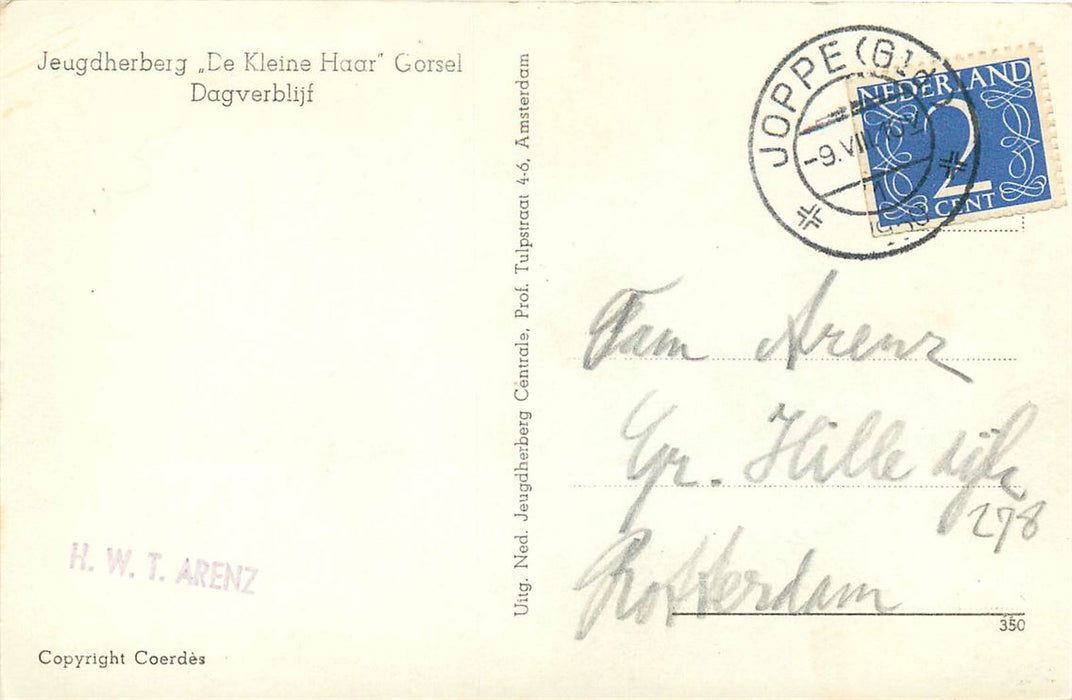 Jeugdherberg „De Kleine Haar" Gorsel
Dagverblijf
Uitg. Ned. Jeugdherberg Centrale, Prof. Tulpstraat 4-6, Amsterdam
JOPPE (Gld)
-9.VIII.
1950
NEDERLAND
2
CENT
Fam Arenz
Gr. Hille dijk
278
Rotterdam
350
H. W. T. ARENZ
Copyright Coerdès